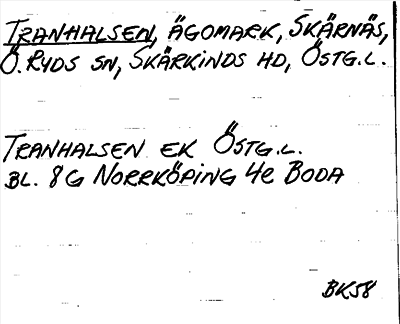 TRANHALSEN, ÄGOMARK, SKÄRNÄS,
Ö. RYDS SN, SKÄRKINDS HD, ÖSTG.L.
TRANHALSEN EK ÖSTG.L.
BL. 8G NORRKÖPING 4e BODA
BK58